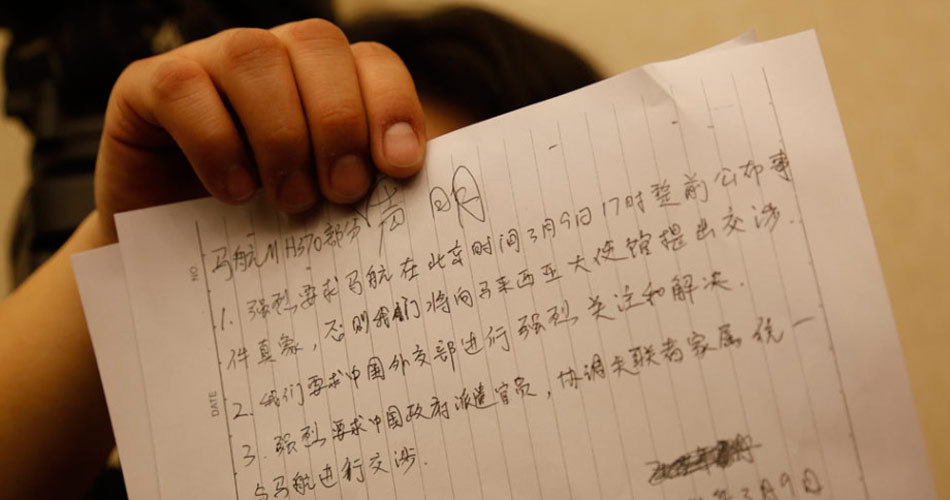 声明
马航MH370部分
NO
1. 强烈要求马航在北京时间3月9日17时整前公布事
件真象，否则我们将向马来西亚大使馆提出交涉.
2. 我们要求中国外交部进行强烈关注和解决.
DATE
3. 强烈要求中国政府派遣官员，协调失联者家属统一
与马航进行交涉.
年3月9日